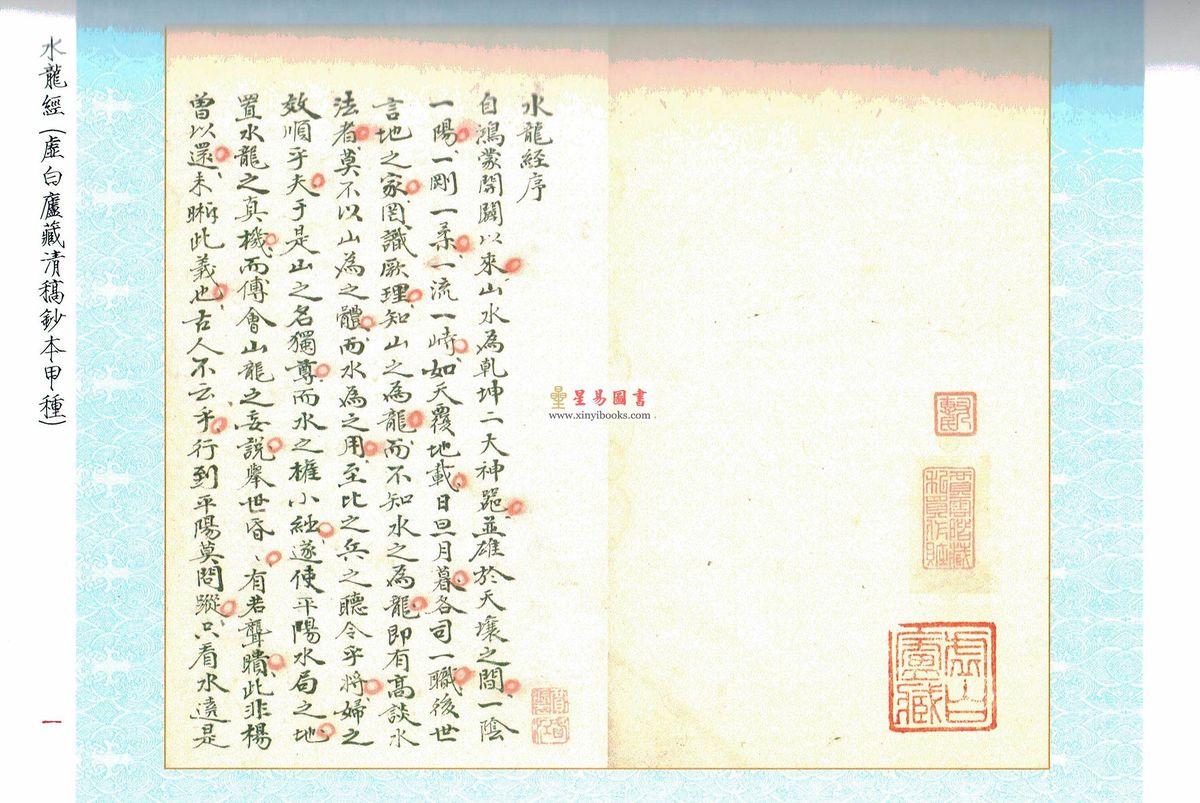 水龍經序
自鴻蒙開闢以來山水為乾坤二大神器並雄於天壤之間一陰
一陽一剛一柔一流一峙如天覆地載日旦月暮各司一職後世
言地之家罔識厥理知山之為龍而不知水之為龍即有高談水
法者莫不以山為之體而水為之用至比之兵之聽令乎將婦之
效順乎夫于是山之名獨尊而水之權小絀遂使平陽水局之地
置水龍之真機而傅會山龍之妄說舉世昏、有若聾瞶此非楊
曾以還未晰此義也古人不云乎行到平陽莫問蹤只看水遶是
虛白廬藏
星易圖書
www.xinyibooks.com
水龍經(虛白廬藏清稿鈔本甲種)
一